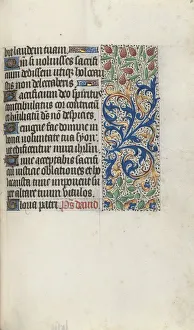 bit laudem tuam.
Qm si voluisses sacrifi
cium dedissem utiqz holocau
stis non delectaberis
Sacrificium deo spiritus
contribulatus cor contritu
et humiliatu ds no despicies
Benigne fac domine in
bona voluntate tua syon
ut edificentur muri ihrlm
Tunc acceptabis sacrifi
cium iusticie oblationes et ho
locausta tunc imponent su
per altare tuum vitulos
Gloria patri. Ps david